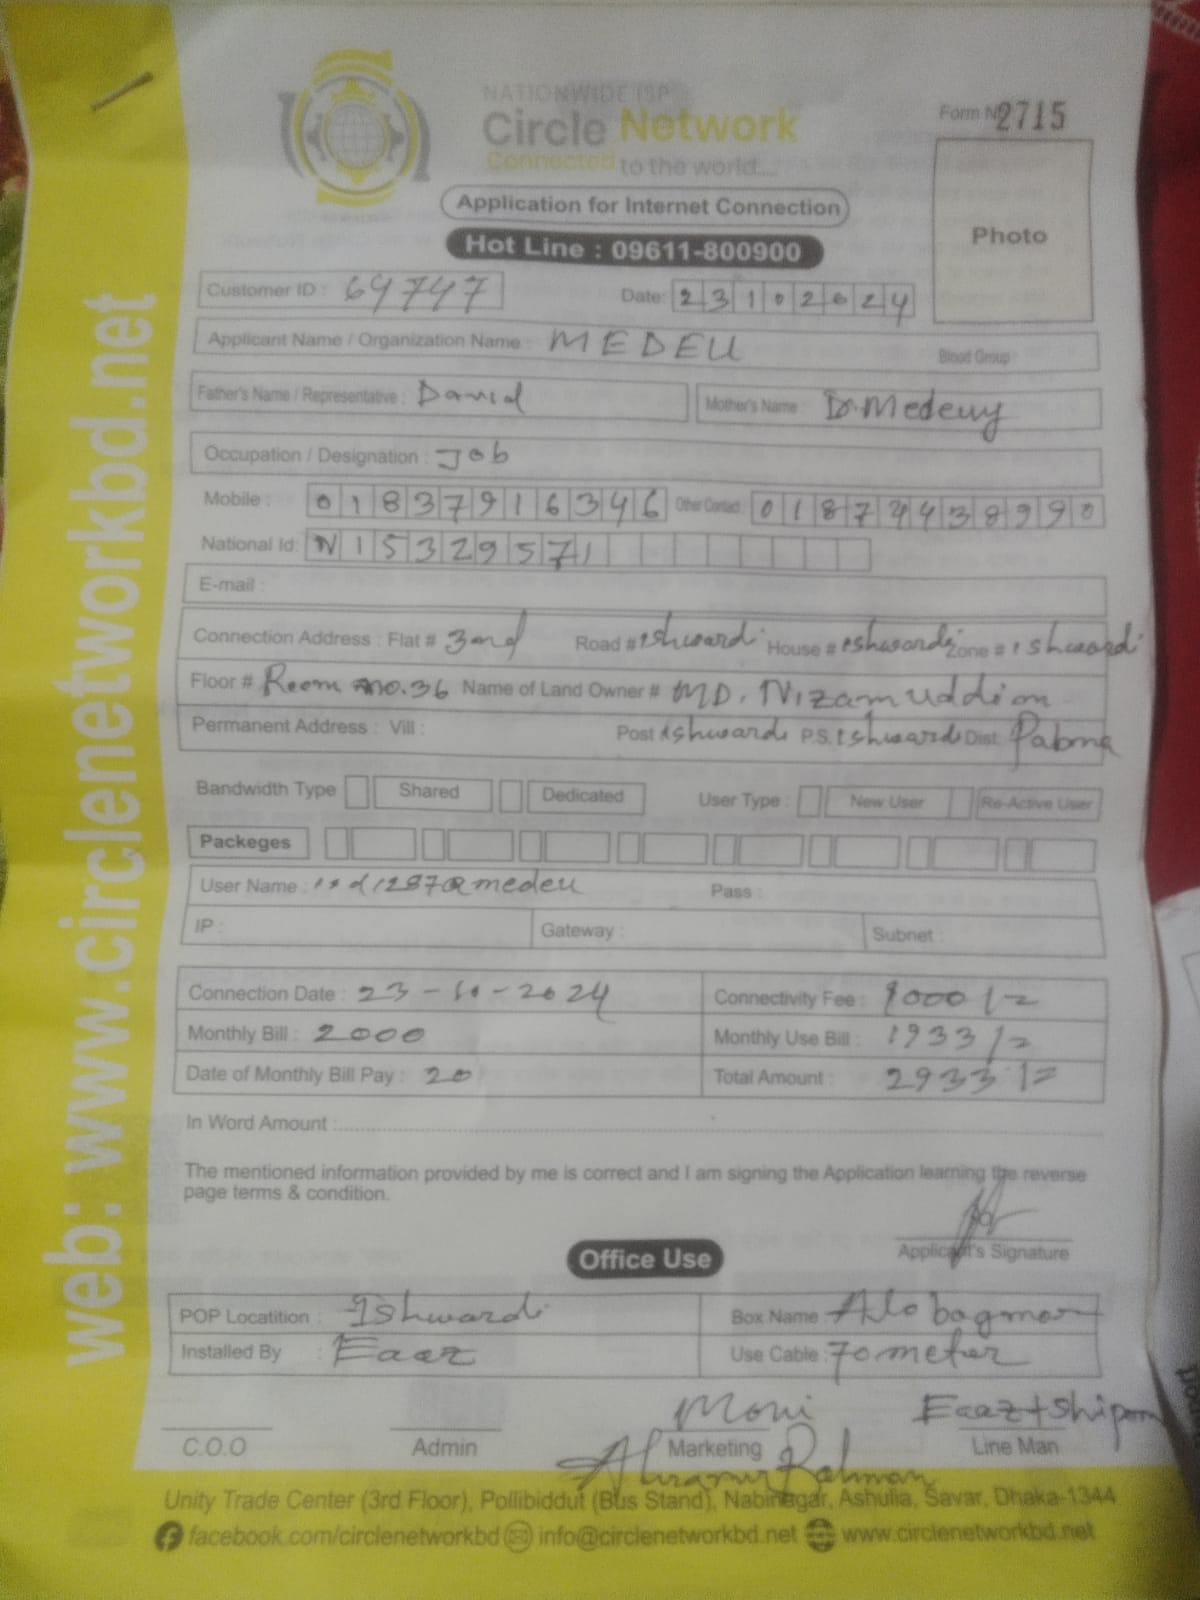 NATIONWIDE ISP
Circle Network
Connected to the world....
Form No 2715
Photo
Application for Internet Connection
Hot Line : 09611-800900
Customer ID : 64747
Date: 23102024
Applicant Name / Organization Name : MEDEU
Blood Group :
Father's Name / Representative : David
Mother's Name : Dr. Medeuy
Occupation / Designation : Job
Mobile : 01837916346 Other Contact : 01874438990
National Id: N15329571
E-mail :
Connection Address : Flat # 3nd Road # ishwardi House # ishwardi Zone # ishwardi
Floor # Room no. 36 Name of Land Owner # MD. Nizam uddion
Permanent Address : Vill : Post ishwardi P.S. ishwardi Dist. Pabna
Bandwidth Type Shared Dedicated User Type : New User Re-Active User
Packeges
User Name : isd1287@medeu Pass :
IP : Gateway : Subnet :
Connection Date : 23-10-2024 Connectivity Fee : 1000/=
Monthly Bill : 2000 Monthly Use Bill : 1933/=
Date of Monthly Bill Pay : 20 Total Amount : 2933/=
In Word Amount :
The mentioned information provided by me is correct and I am signing the Application learning the reverse
page terms & condition.
Applicant's Signature
Office Use
POP Locatition : Ishwardi Box Name : Alobagmor
Installed By : Eaaz Use Cable : 70 meter
Moni Eaaz+Shipon
C.O.O Admin Marketing Line Man
Rahman
Unity Trade Center (3rd Floor), Pollibiddut (Bus Stand), Nabinagar, Ashulia, Savar, Dhaka-1344
facebook.com/circlenetworkbd info@circlenetworkbd.net www.circlenetworkbd.net
web: www.circlenetworkbd.net